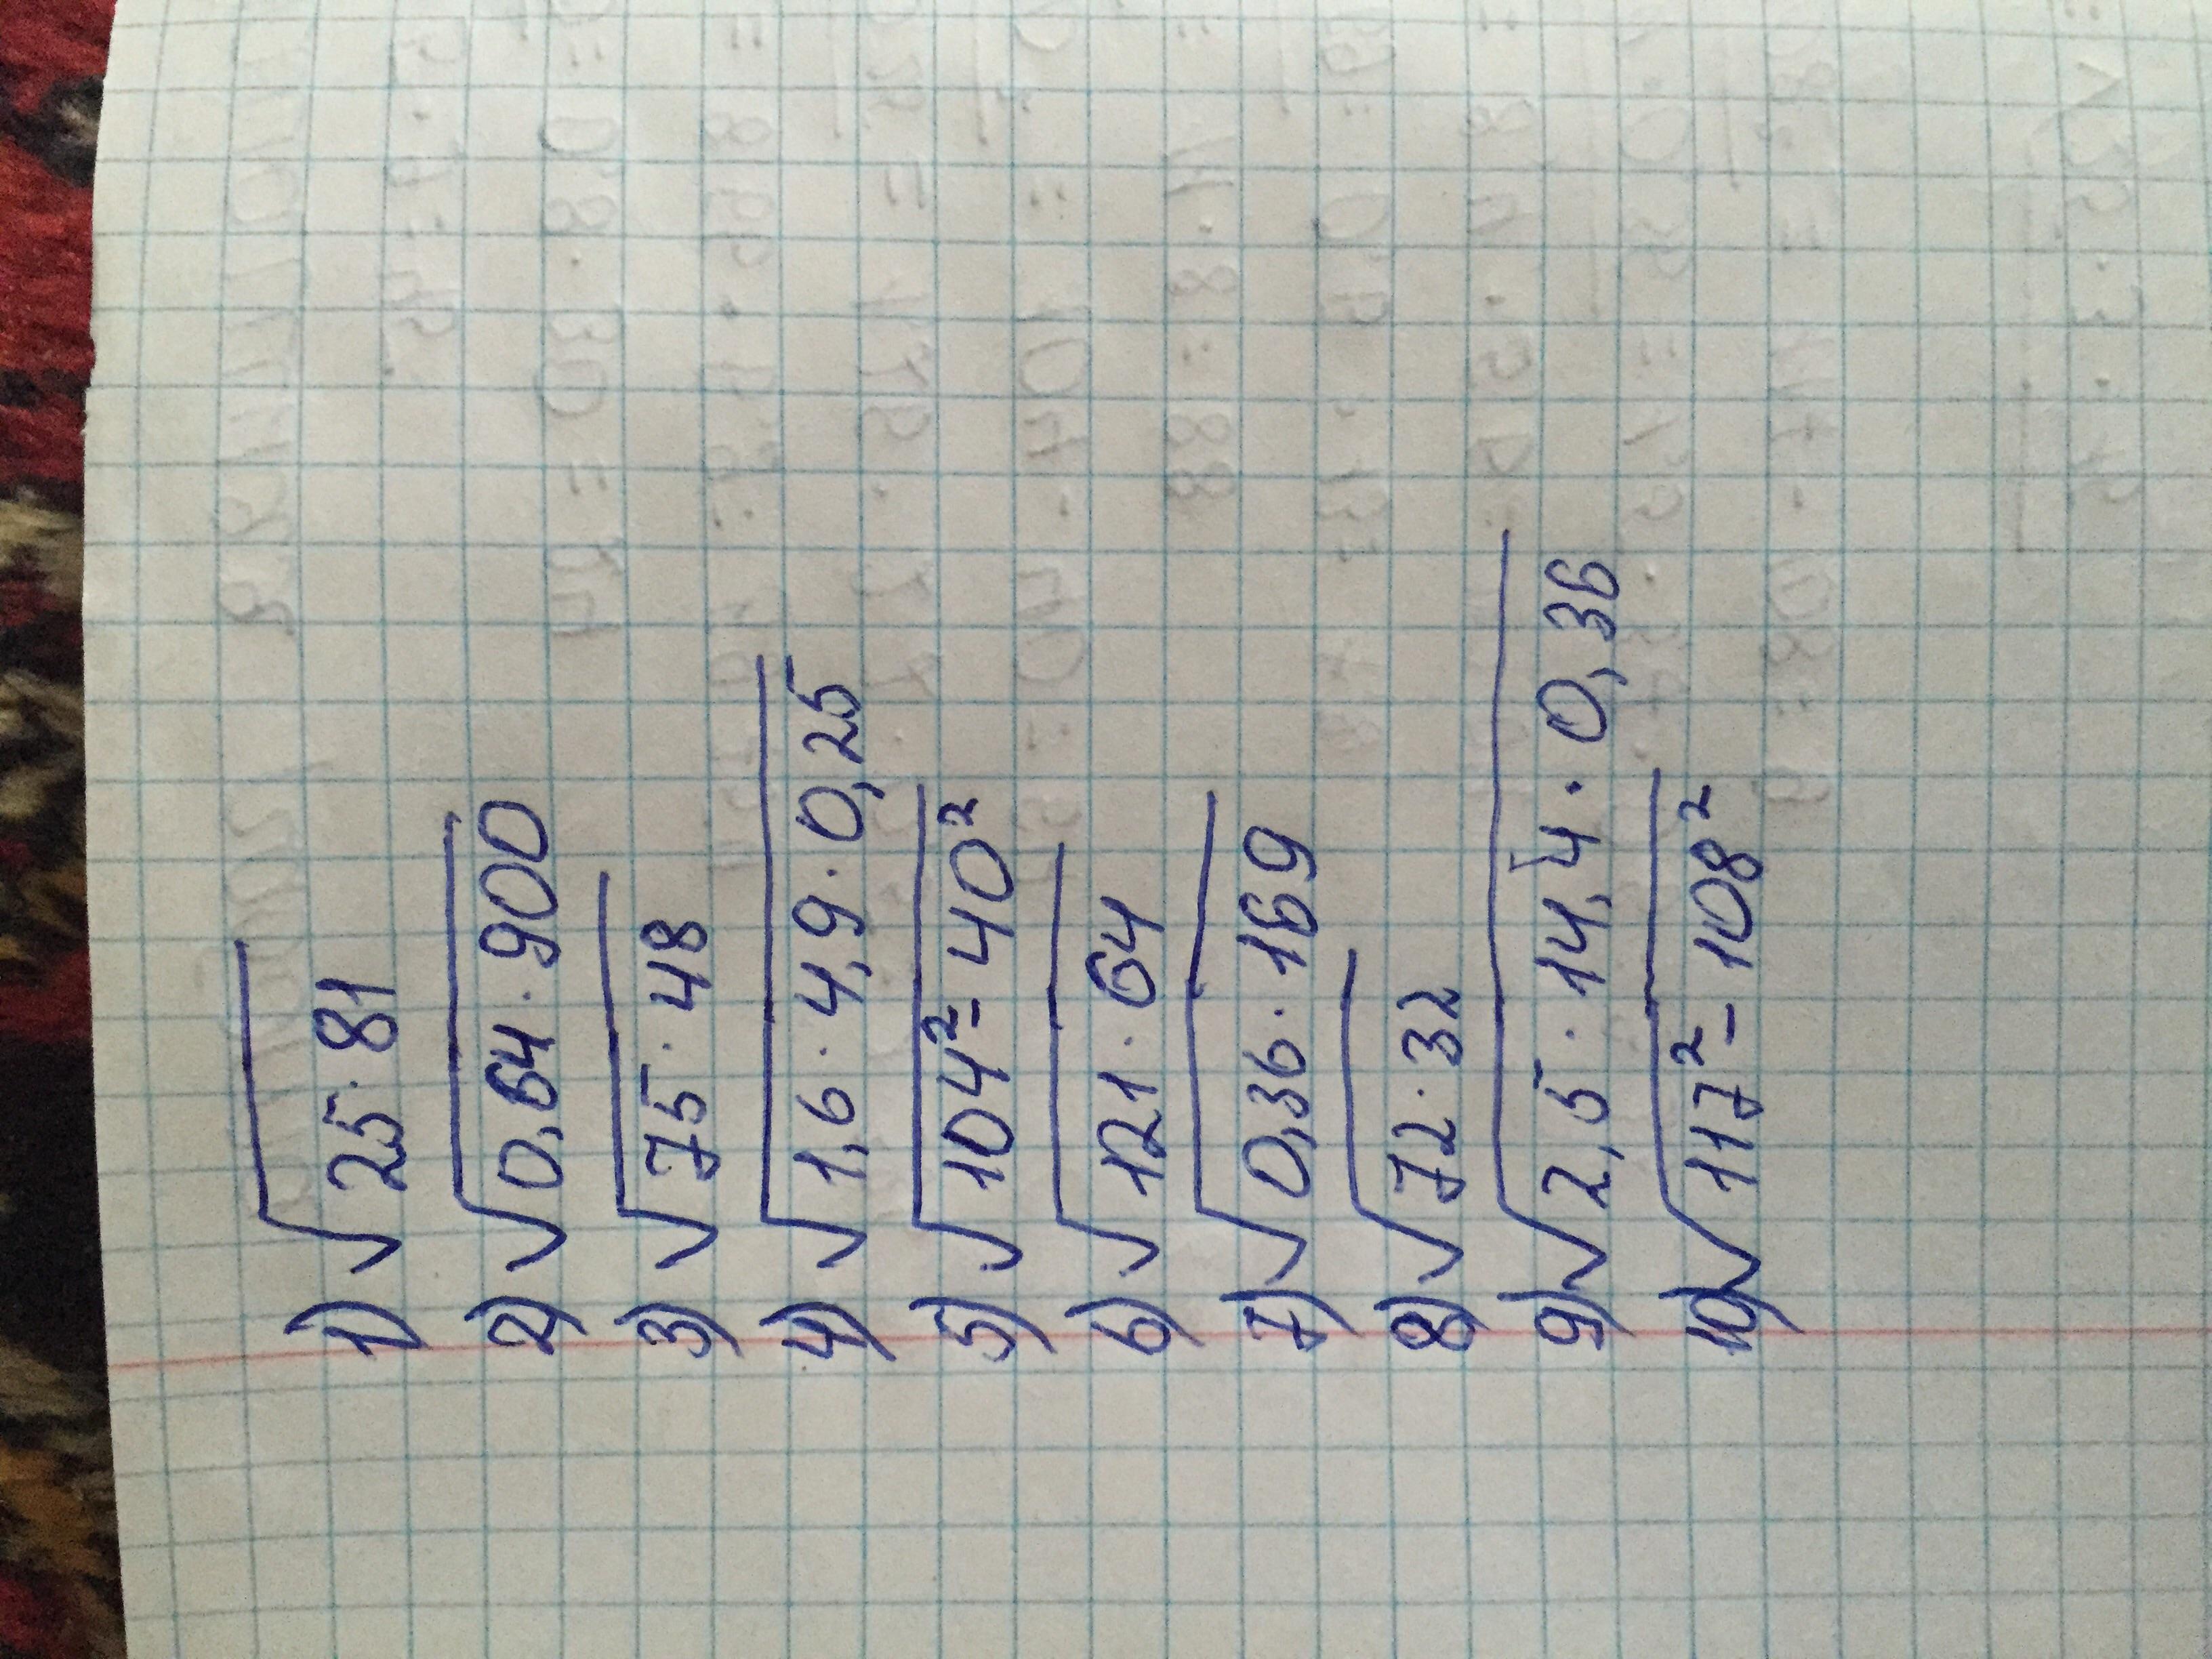 1) √25·81
2) √0,64·900
3) √75·48
4) √1,6·4,9·0,25
5) √104²-40²
6) √121·64
7) √0,36·169
8) √72·32
9) √2,5·14,4·0,36
10) √117²-108²